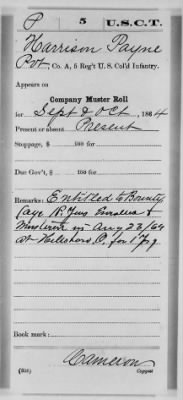 P | 5 | U.S.C.T.
Harrison Payne
Pvt, Co. A, 5 Reg't U. S. Col'd Infantry.
Appears on
Company Muster Roll
for Sept & Oct, 1864
Present or absent Present
Stoppage, $ 100 for
Due Gov't, $ 100 for
Remarks: Entitled to Bounty
Age 18 Yrs Enrolled &
Mustered in Aug 23/64
at Hillsboro, O. for 1 Yr
Book mark:
Cameron
Copyist.